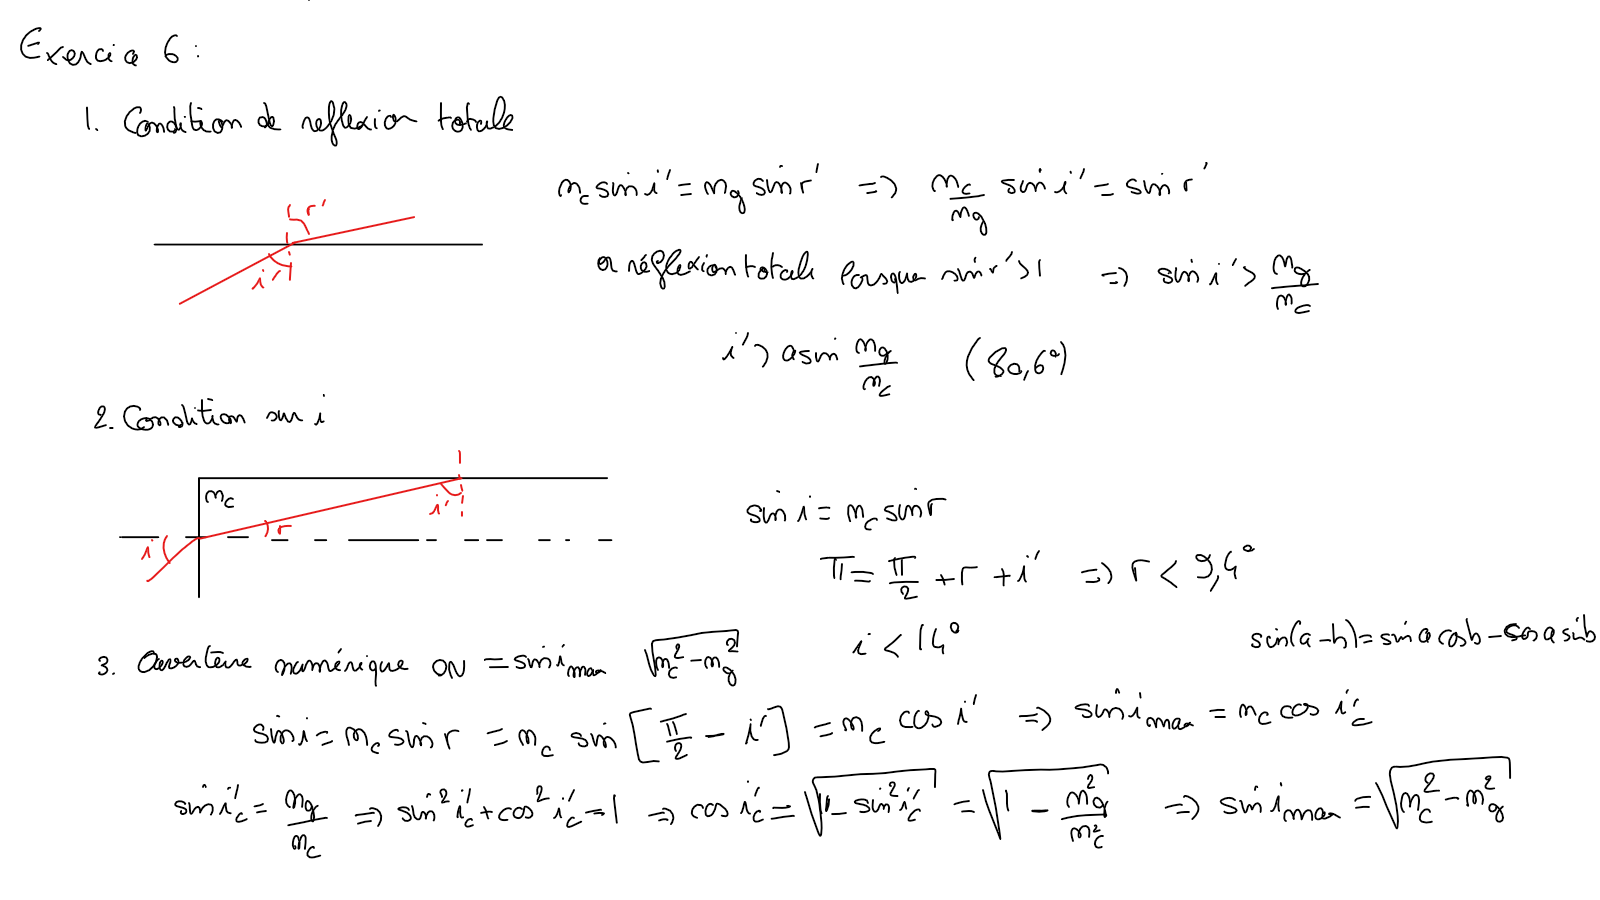 Exercice 6 :
1. Condition de reflexion totale
n_c sin i' = n_g sin r' => n_c/n_g sin i' = sin r'
r'
i'
or réflexion totale lorsque sin r' > 1 => sin i' > n_g/n_c
i' > asin n_g/n_c (80,6°)
2. Condition sur i
n_c
i'
r
i
sin i = n_c sin r
π = π/2 + r + i' => r < 9,4°
i < 14°
sin(a-b) = sin a cos b - cos a sin b
3. Ouverture numérique ON = sin i_max √(n_c² - n_g²)
sin i = n_c sin r = n_c sin [π/2 - i'] = n_c cos i' => sin i_max = n_c cos i'_c
sin i'_c = n_g/n_c => sin² i'_c + cos² i'_c = 1 => cos i'_c = √(1 - sin² i'_c) = √(1 - n_g²/n_c²) => sin i_max = √(n_c² - n_g²)